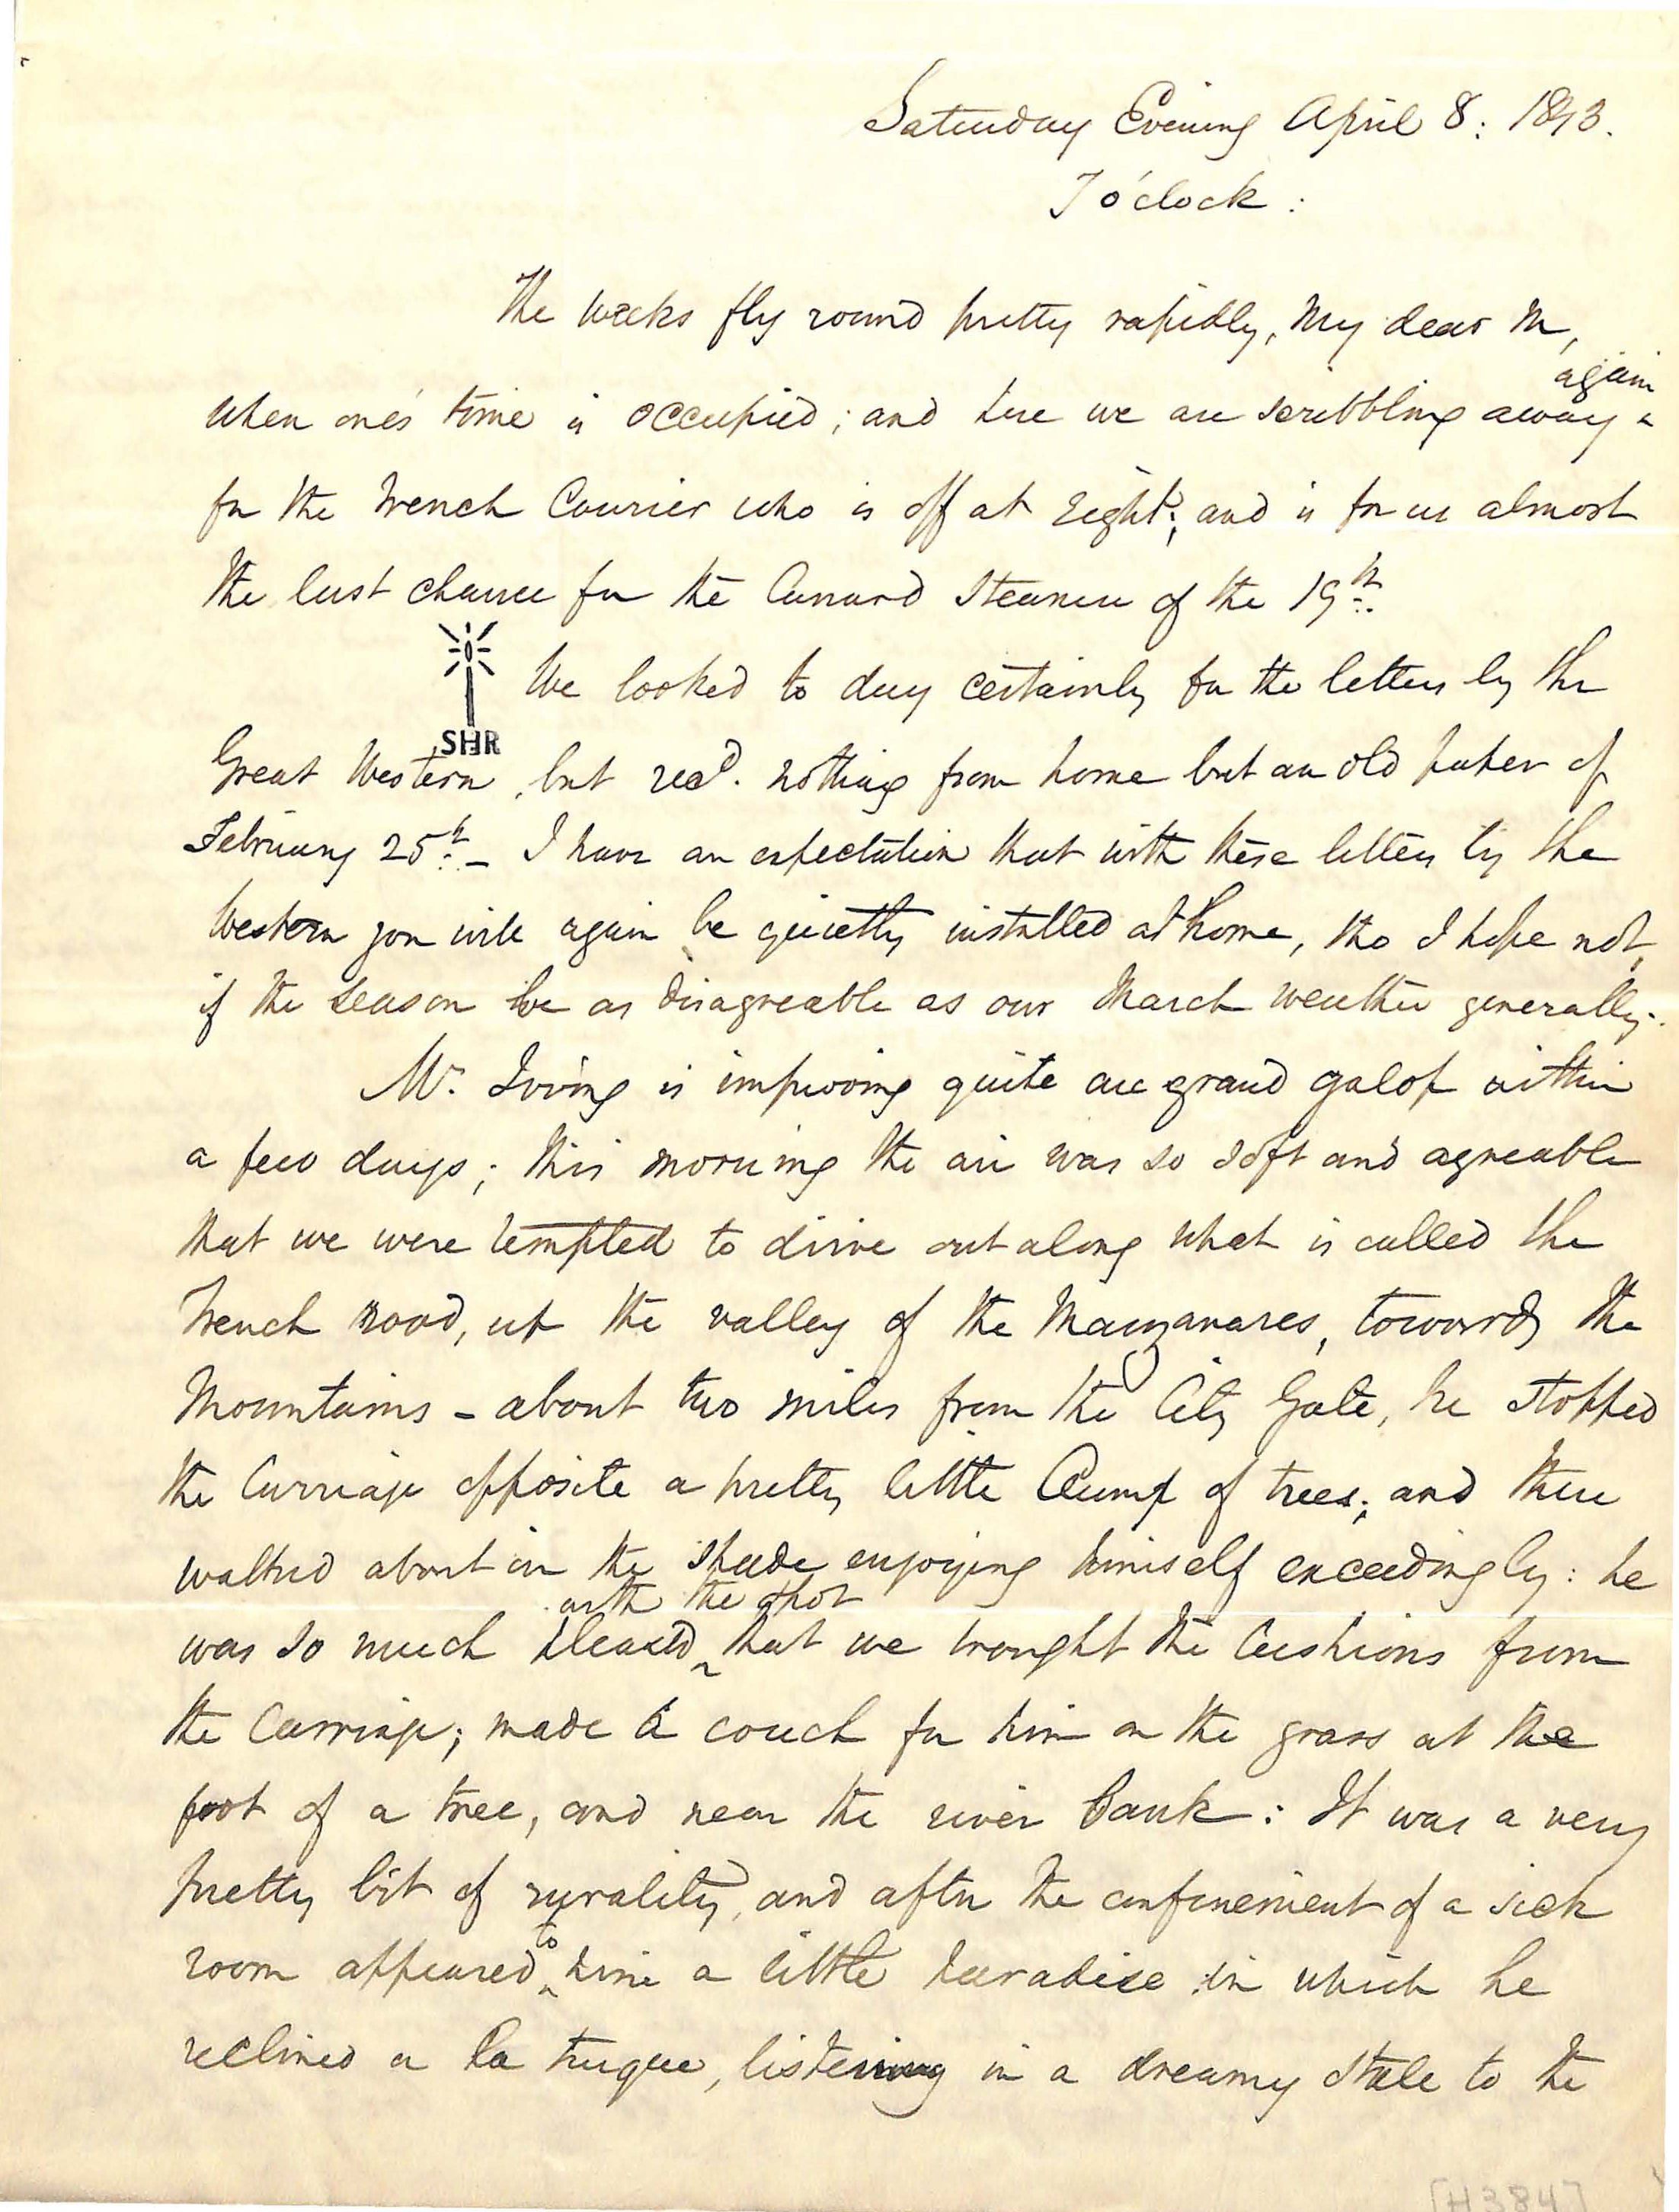 Saturday Evening April 8: 1843.
7 o'clock:
The weeks fly round pretty rapidly, My dear M,
again
when one's time is occupied; and here we are scribbling away
for the French Courier who is off at eight; and is for us almost
the last chance for the Cunard Steamer of the 19th.
We looked to day certainly for the letters by the
SHR
Great Western, but recd. nothing from home but an old paper of
February 25th. - I have an expectation that with these letters by the
Western you will again be quietly installed at home, tho I hope not,
if the season be as disagreable as our March weather generally.
Mr. Irving is improving quite au grand galop within
a few days; this morning the air was so soft and agreable
that we were tempted to drive out along what is called the
French road, up the valley of the Manzanares, towards the
Mountains - about two miles from the City Gate, he stopped
the Carriage opposite a pretty little Clump of trees; and there
walked about in the shade enjoying himself exceedingly: he
with the spot
was so much pleased that we brought the Cushions from
the Carriage; made a couch for him on the grass at the
foot of a tree, and near the river bank: It was a very
pretty bit of rurality, and after the confinement of a sick
to
room appeared him a little paradise in which he
reclined a la turque, listening in a dreamy state to the
[H384]